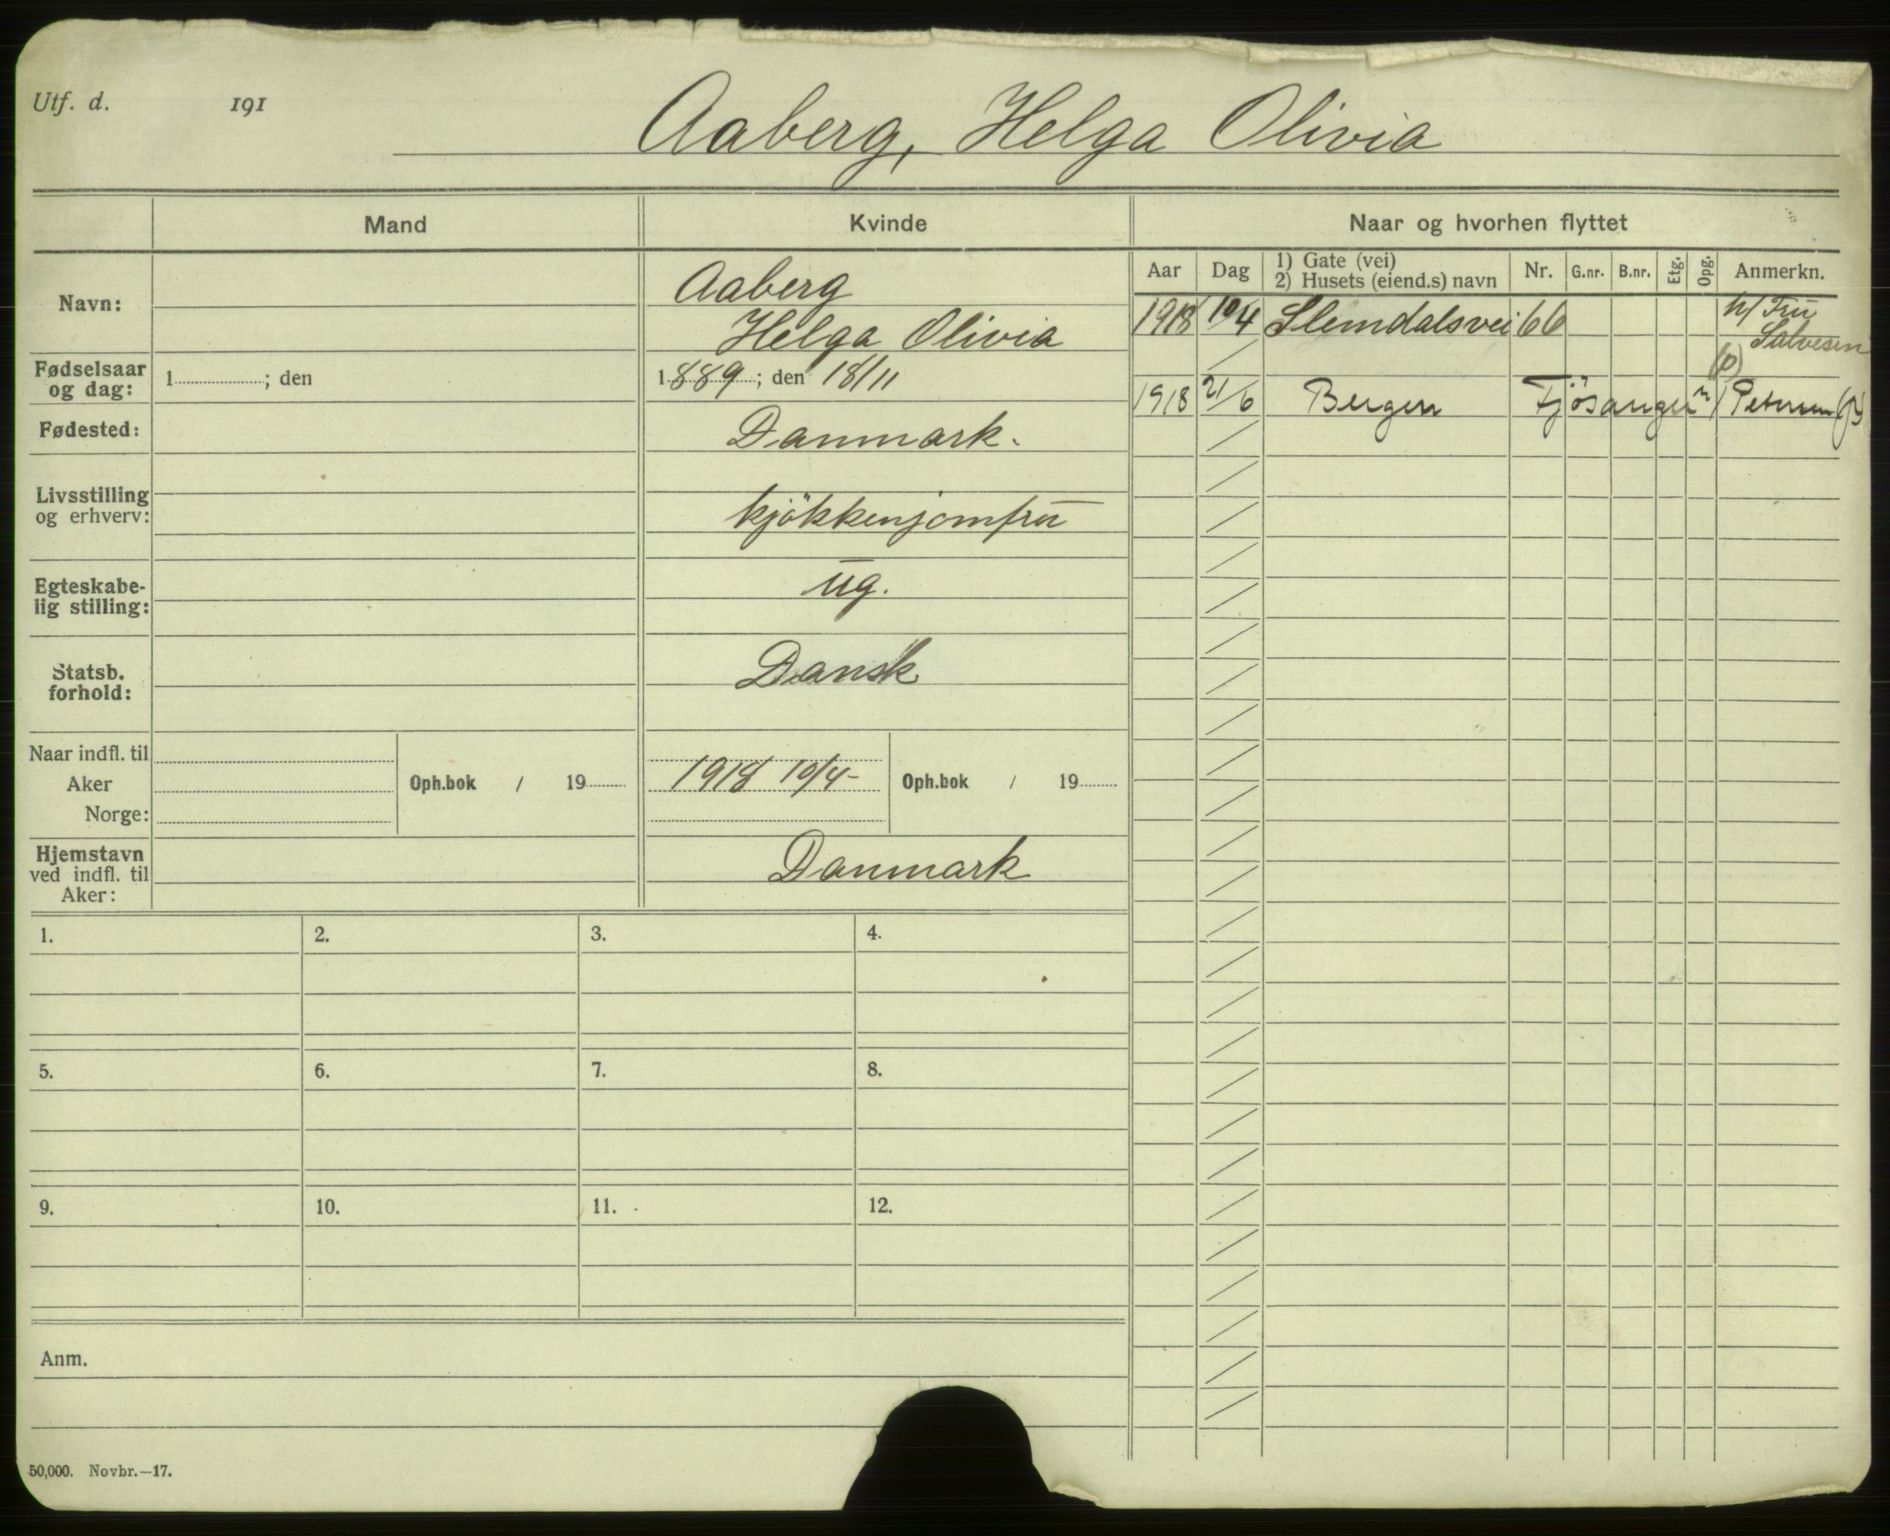 Utf. d. 191
Aaberg, Helga Olivia
Mand
Kvinde
Naar og hvorhen flyttet
Aar
Dag
1) Gate (vei)
2) Husets (eiend.s) navn
Nr.
G.nr.
B.nr.
Etg.
Opg.
Anmerkn.
Navn:
Aaberg
Helga Olivia
Fødselsaar
og dag:
1 ; den
1889 ; den 18/11
Fødested:
Danmark.
Livsstilling
og erhverv:
kjökkenjomfru
Egteskabe-
lig stilling:
ug.
Statsb.
forhold:
Dansk
Naar indfl. til
Aker
Norge:
Oph.bok / 19
1918 10/4-
Oph.bok / 19
Hjemstavn
ved indfl. til
Aker:
Danmark
1918 10/4 Slemdalsvei 66 h/ Fru
Salvesen
(p)
1918 21/6 Bergen Fjösanger
1.
2.
3.
4.
5.
6.
7.
8.
9.
10.
11.
12.
Anm.
50,000. Novbr.—17.